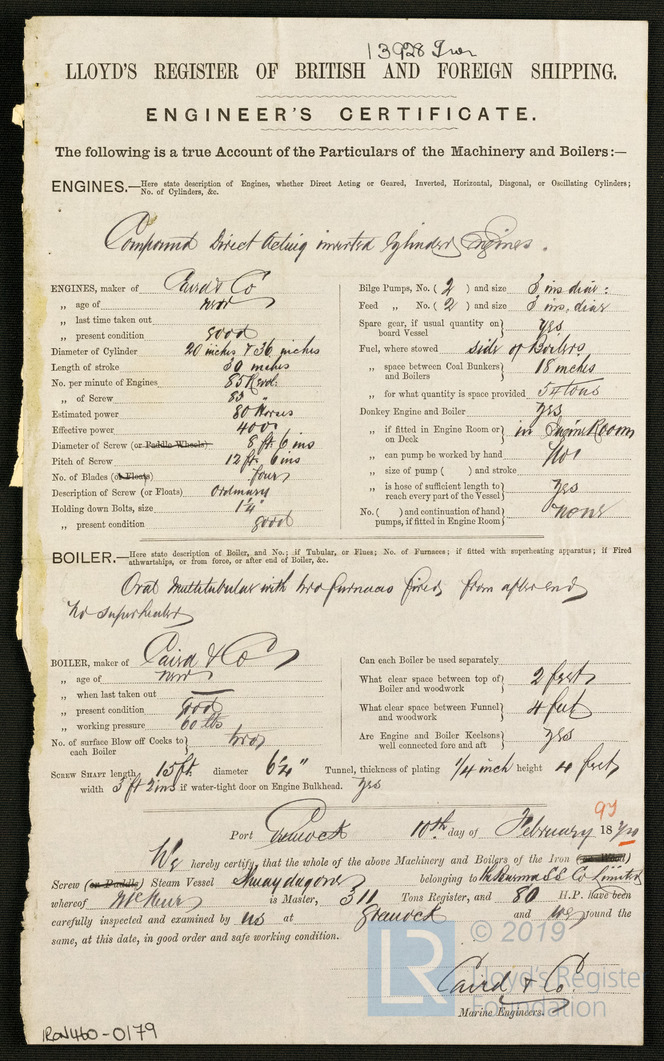 13928 Iron
LLOYD'S REGISTER OF BRITISH AND FOREIGN SHIPPING.
ENGINEER'S CERTIFICATE.
The following is a true Account of the Particulars of the Machinery and Boilers:—
ENGINES.—Here state description of Engines, whether Direct Acting or Geared, Inverted, Horizontal, Diagonal, or Oscillating Cylinders;
No. of Cylinders, &c.
Compound Direct Acting inverted Cylinder Engines.
ENGINES, maker of Caird & Co
„ age of new
„ last time taken out
„ present condition good
Diameter of Cylinder 20 inches & 36 inches
Length of stroke 30 inches
No. per minute of Engines 85 Revd.
„ of Screw 85 "
Estimated power 80 Horses
Effective power 400
Diameter of Screw (or Paddle Wheels) 8 ft. 6 ins
Pitch of Screw 12 ft. 6 ins
No. of Blades (or Floats) four
Description of Screw (or Floats) Ordinary
Holding down Bolts, size 1¼"
„ present condition good
Bilge Pumps, No. ( 2 ) and size 3 ins diar:
Feed „ No. ( 2 ) and size 3 ins. diar
Spare gear, if usual quantity on board Vessel yes
Fuel, where stowed side of Boilers
„ space between Coal Bunkers and Boilers 18 inches
„ for what quantity is space provided 54 tons
Donkey Engine and Boiler yes
„ if fitted in Engine Room or on Deck in Engine Room
„ can pump be worked by hand No
„ size of pump ( ) and stroke
„ is hose of sufficient length to reach every part of the Vessel yes
No. ( ) and continuation of hand pumps, if fitted in Engine Room none
BOILER.—Here state description of Boiler, and No.; if Tubular, or Flues; No. of Furnaces; if fitted with superheating apparatus; if Fired
athwartships, or from fore, or after end of Boiler, &c.
Oval Multitubular with two furnaces fired from after end
No superheater
BOILER, maker of Caird & Co
„ age of new
„ when last taken out —
„ present condition good
„ working pressure 60 lbs
No. of surface Blow off Cocks to each Boiler two
Can each Boiler be used separately
What clear space between top of Boiler and woodwork 2 feet
What clear space between Funnel and woodwork 4 feet
Are Engine and Boiler Keelsons well connected fore and aft yes
SCREW SHAFT length 15 ft. diameter 6¼" Tunnel, thickness of plating 1/4 inch height 4 feet
width 3 ft 2 ins if water-tight door on Engine Bulkhead. yes
Port Greenock 10th day of February 18
We hereby certify that the whole of the above Machinery and Boilers of the Iron (or Wood)
Screw (or Paddle) Steam Vessel belonging to The Burma SS Co Limited
whereof is Master, 311 Tons Register, and 80 H.P. have been
carefully inspected and examined by us at Greenock and we found the
same, at this date, in good order and safe working condition.
Caird & Co.
Marine Engineers.
LR
© 2019
Lloyd's Registe
Foundation
IRON460-0179